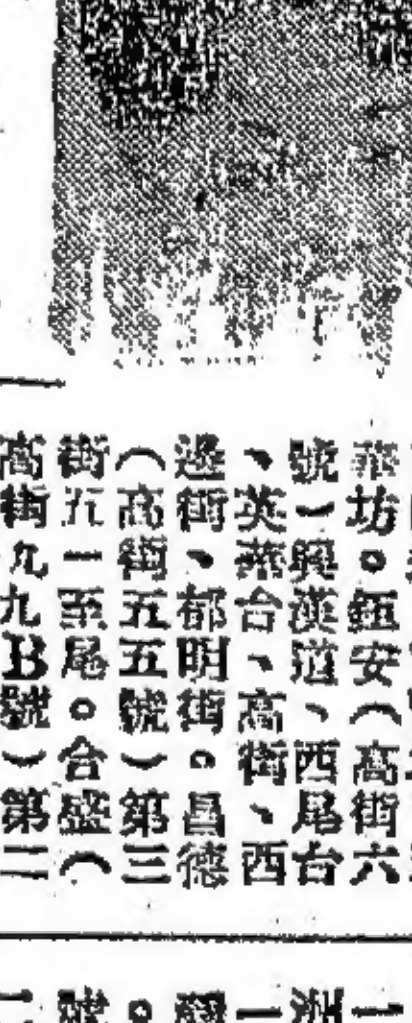 華坊。鈺安(高街六
號)興漢道、西尾台
、英華台、高街、西
邊街、郁明街。昌德
(高街五五號)第三
街五一至尾。合盛(
高街九九B號)第二